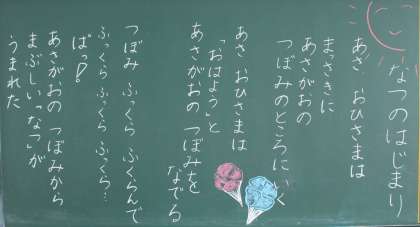 なつのはじまり
あさ おひさまは
まっさきに
あさがおの
つぼみのところにいく
あさ おひさまは
「おはよう」と
あさがおの つぼみを
なでる
つぼみ ふっくら ふくらんで
ふっくら ふっくら ふっくら…
ぱっ!
あさがおの つぼみから
まぶしい「なつ」が
うまれた